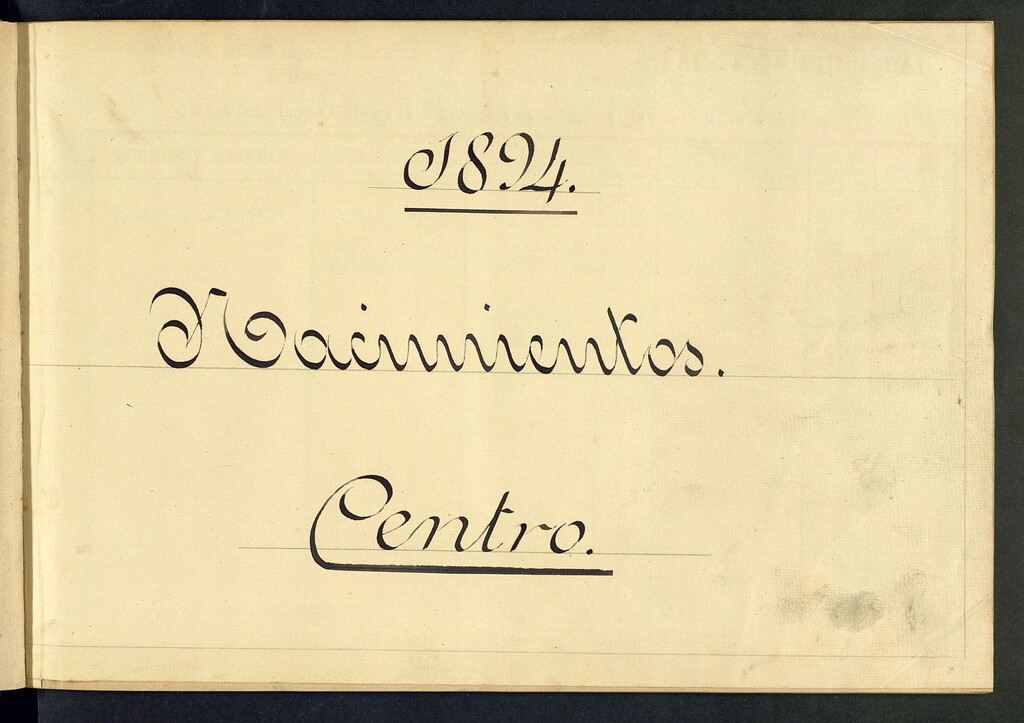 1894.
Nacimientos.
Centro.